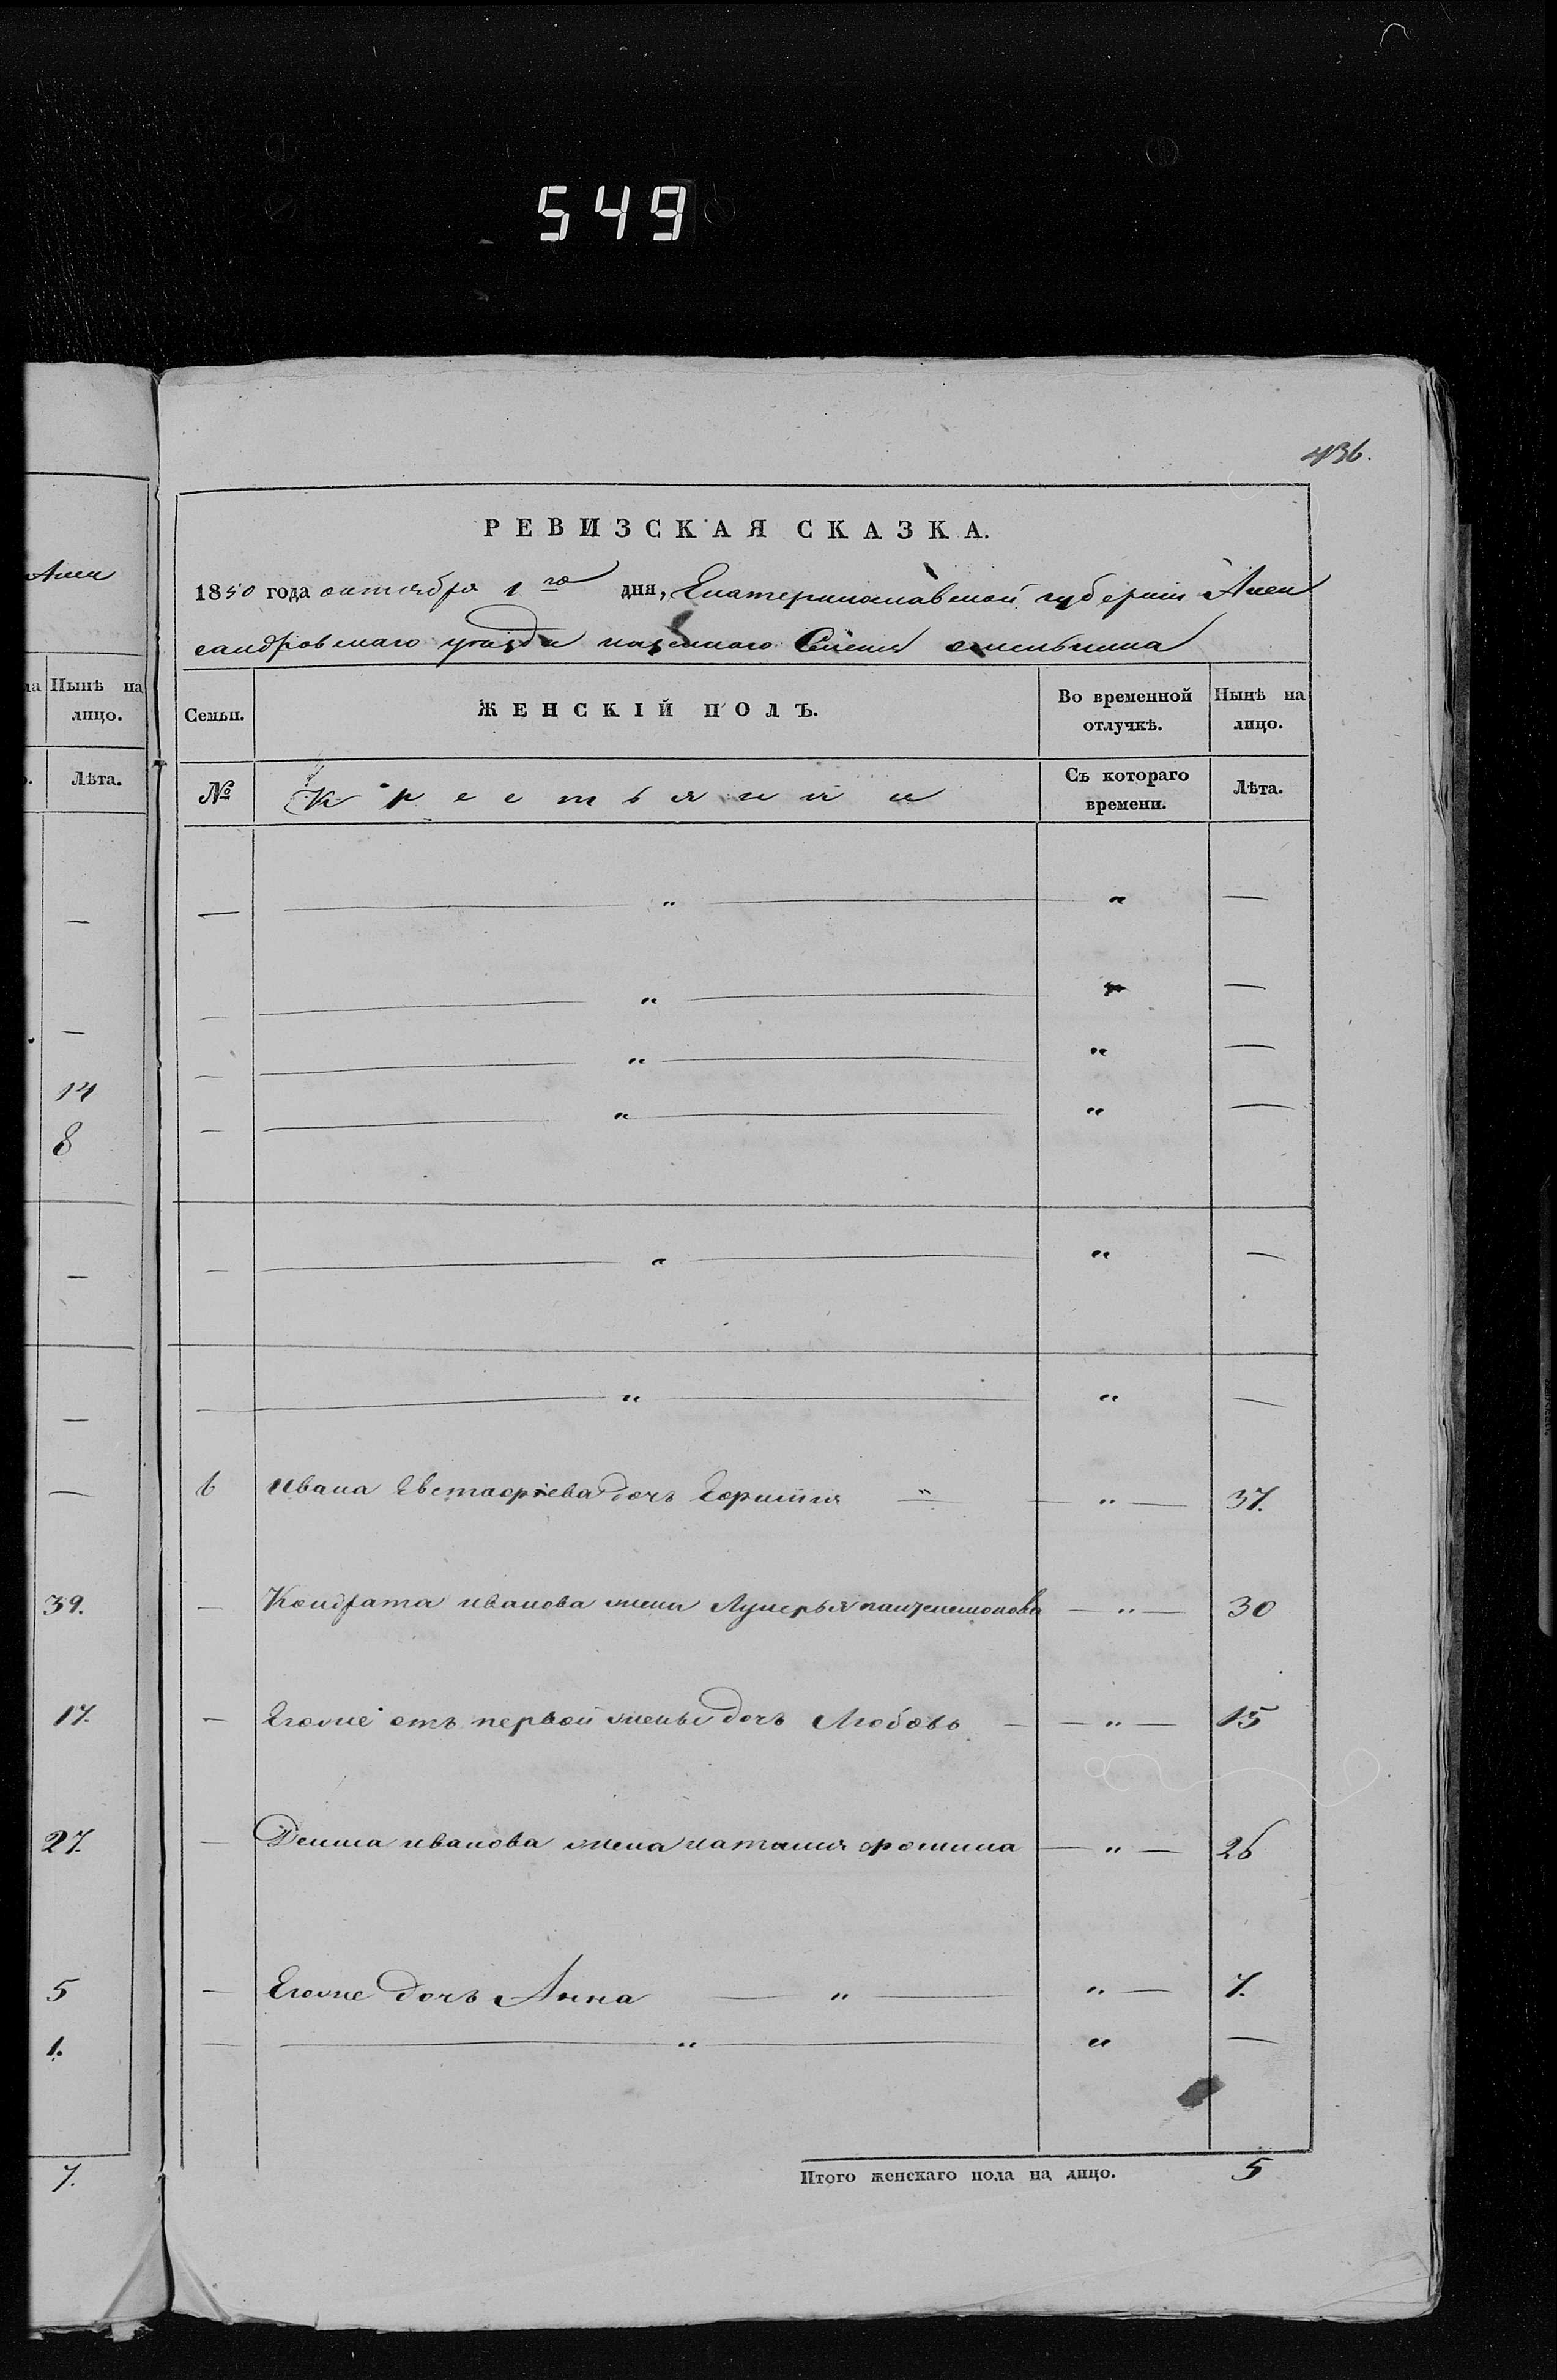 549
436.
Алек
РЕВИЗСКАЯ СКАЗКА.
1850 года октября 1го дня, Екатеринославской губернии Алек
сандровскаго уезда казеннаго Селения
на Нынѣ на лицо.
Лѣта.
Семьи. ЖЕНСКІЙ ПОЛЪ. Во временной отлучкѣ. Нынѣ на лицо.
№ Крестьянии Съ котораго времени. Лѣта.
— — " — " —
— — " — " —
— — " — " —
14 — — " — " —
8
— — " — " —
— — " — " —
6 Ивана Евстафиева дочь " — " — 37.
39. — Кондрата иванова жена Лукерья — " — 30
17. — Егоже отъ первой жены дочь Любовь — — " — 15
27. — Дениса иванова жена наталия фомина — " — 26
5 — Егоже дочь Анна — " — " — 7.
1. — — " — " —
7. Итого женскаго пола на лицо. 5